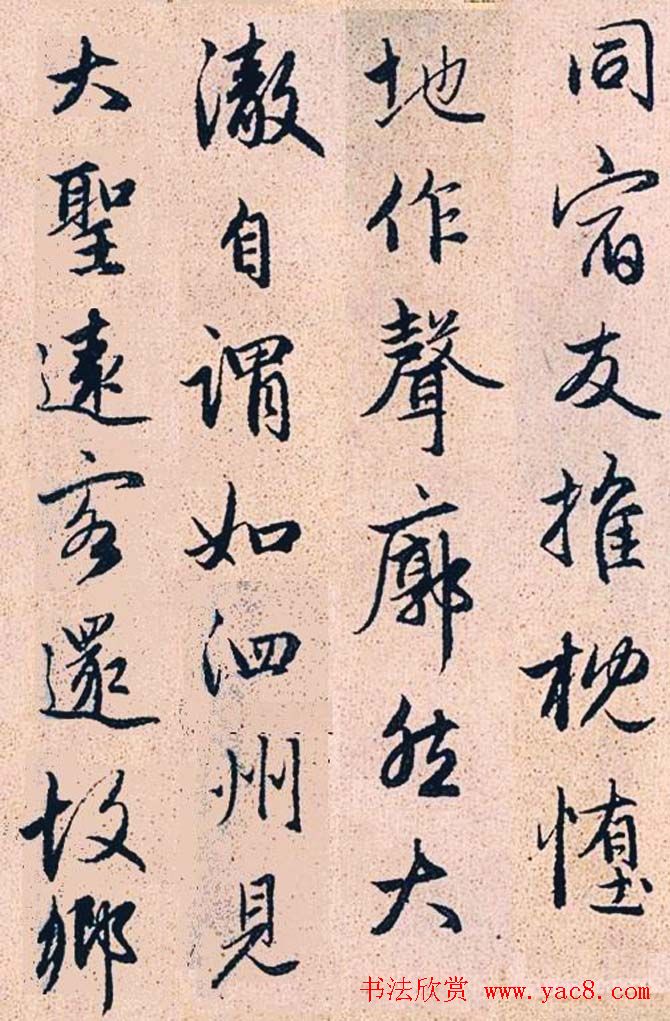 同宿友推枕惰
地作聲廓然大
澈自謂如泗州見
大聖遠客還故鄉
书法欣赏 www.yac8.com